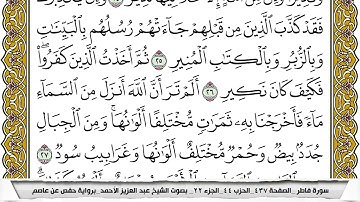 فَقَدْ كَذَّبَ الَّذِينَ مِن قَبْلِهِمْ جَآءَتْهُمْ رُسُلُهُم بِالْبَيِّنَاتِ
وَبِالزُّبُرِ وَبِالْكِتَابِ الْمُنِيرِ ٢٥ ثُمَّ أَخَذْتُ الَّذِينَ كَفَرُوا
فَكَيْفَ كَانَ نَكِيرِ ٢٦ أَلَمْ تَرَ أَنَّ اللَّهَ أَنزَلَ مِنَ السَّمَآءِ
مَآءً فَأَخْرَجْنَا بِهِ ثَمَرَاتٍ مُّخْتَلِفًا أَلْوَانُهَا وَمِنَ الْجِبَالِ
جُدَدٌ بِيضٌ وَحُمْرٌ مُّخْتَلِفٌ أَلْوَانُهَا وَغَرَابِيبُ سُودٌ ٢٧
سورة فاطر _ الصفحة ٤٣٧ _ الحزب ٤٤ _ الجزء ٢٢ _ بصوت الشيخ عبد العزيز الأحمد _ برواية حفص عن عاصم